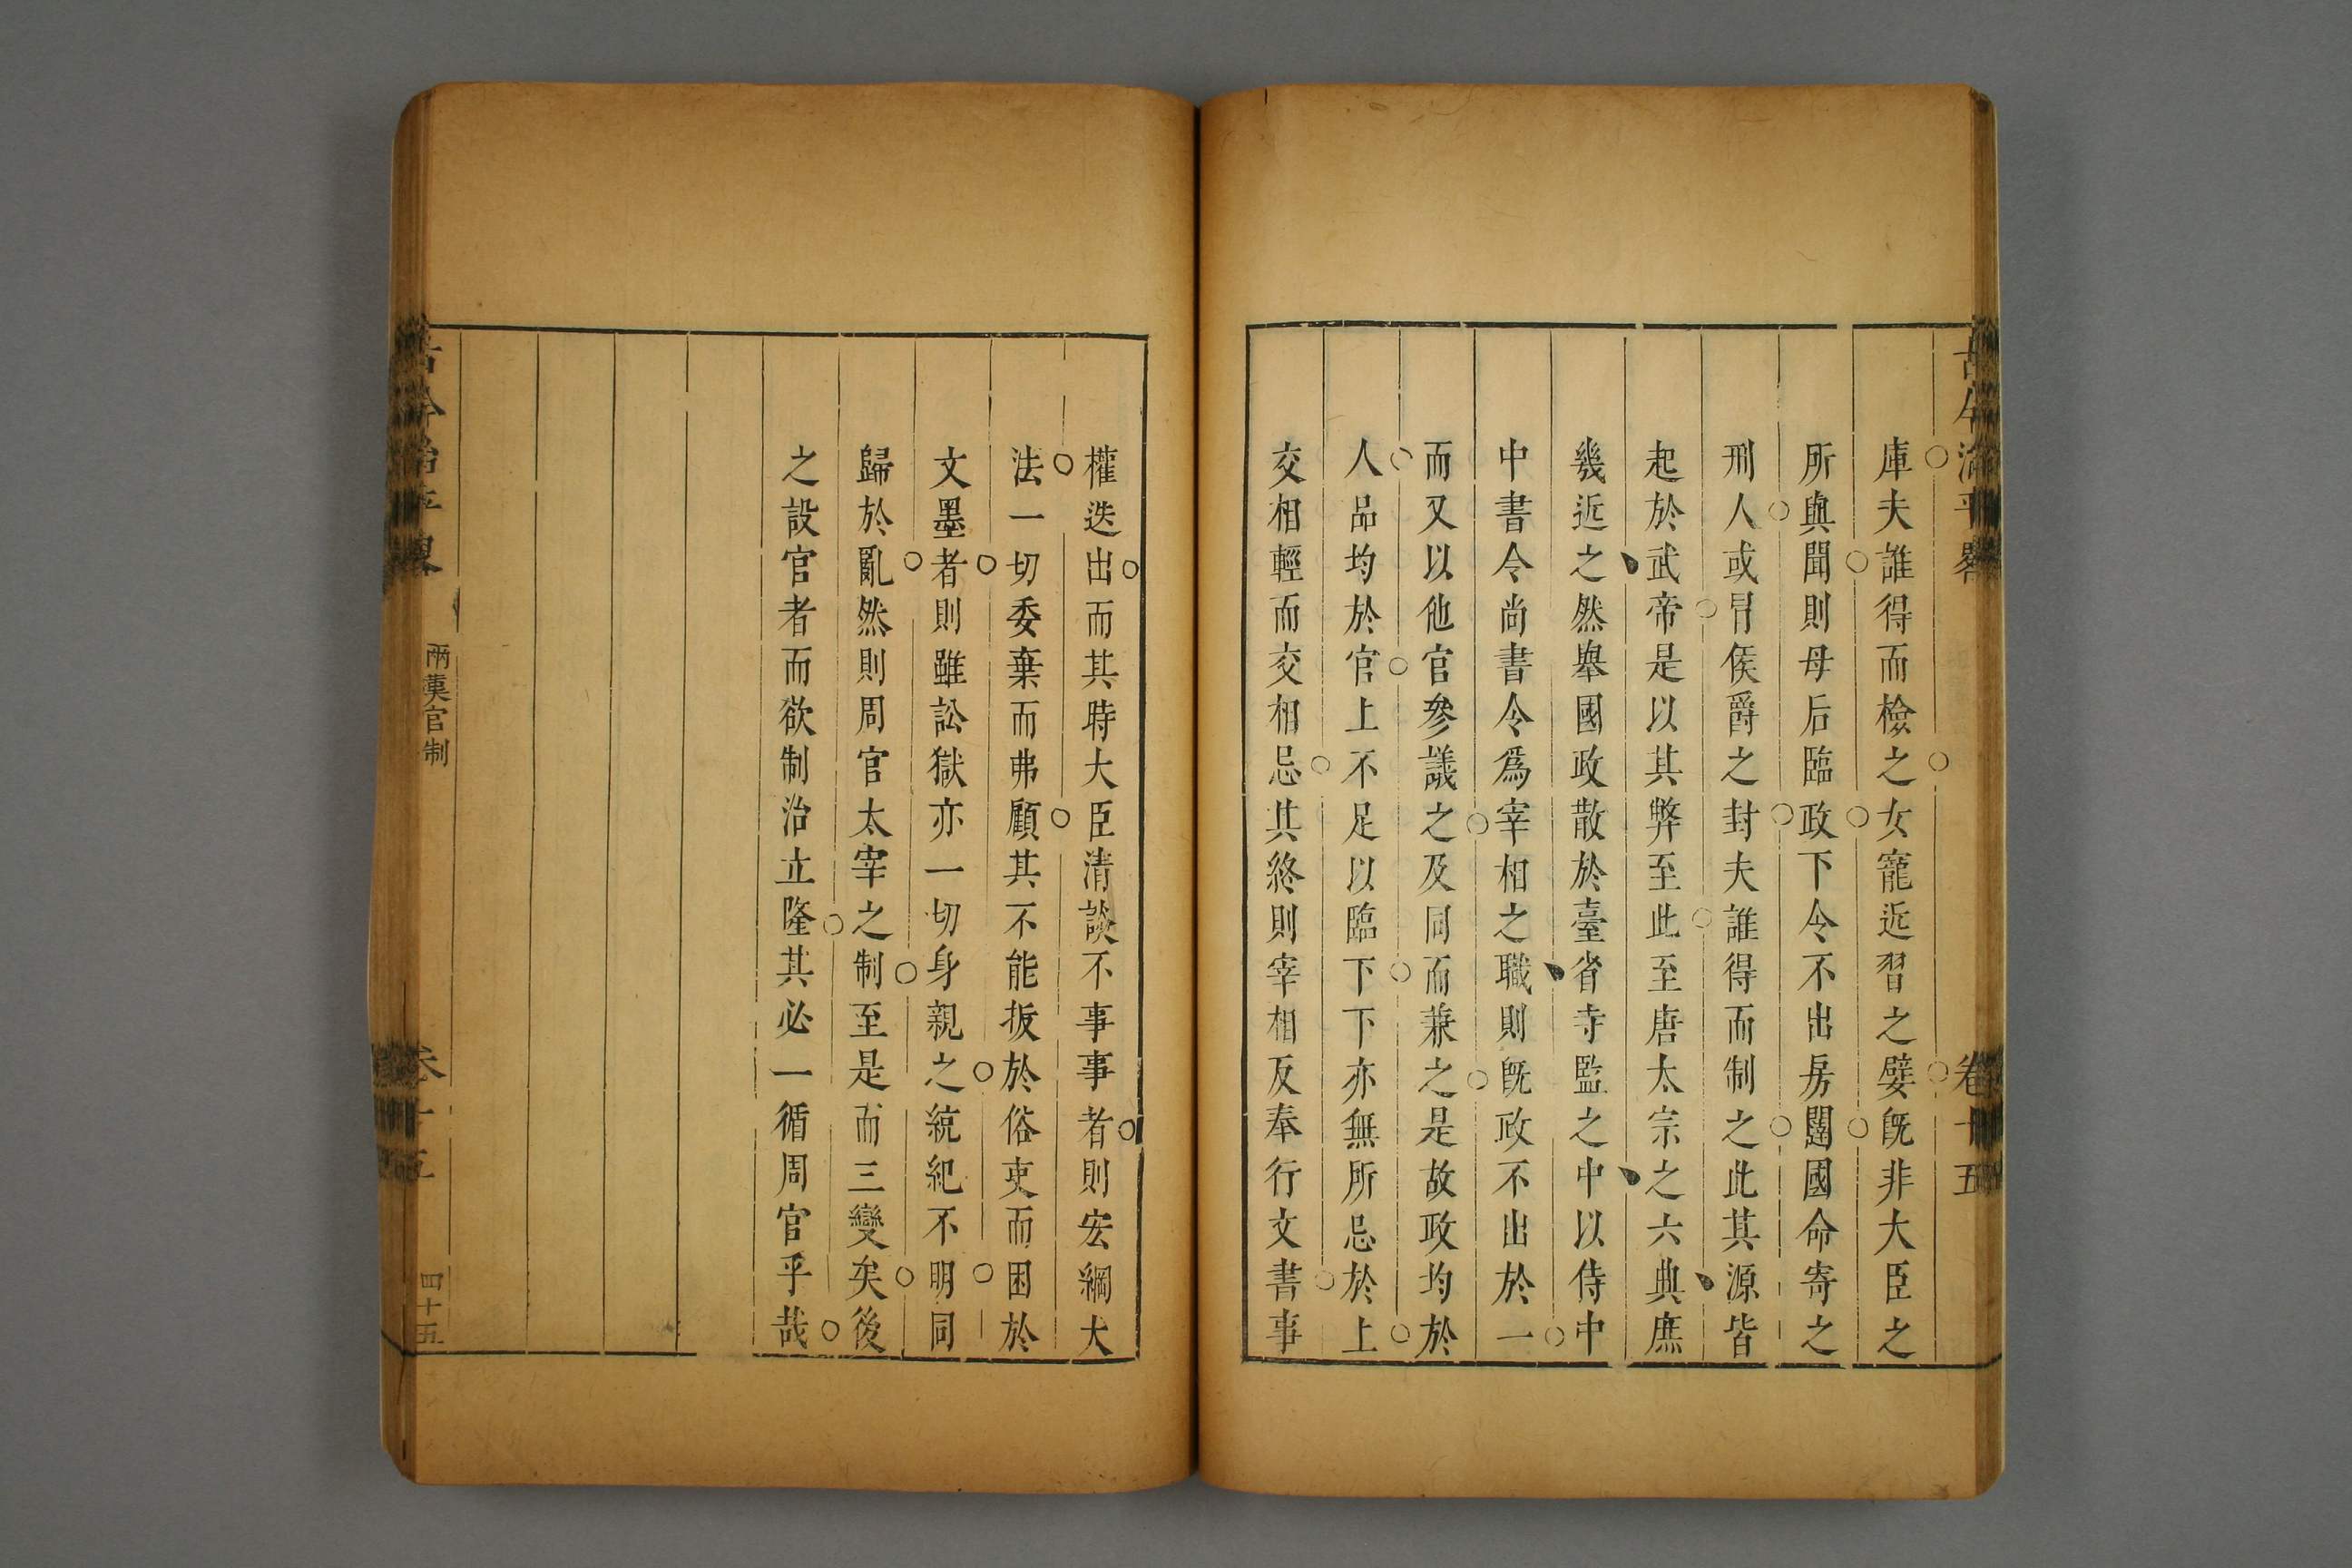 治平畧 卷十五
庫夫誰得而檢之女寵近習之嬖旣非大臣之
所與聞則母后臨政下令不出房闥國命寄之
刑人或冐侯爵之封夫誰得而制之此其源皆
起於武帝是以其弊至此至唐太宗之六典庶
幾近之然舉國政散於臺省寺監之中以侍中
中書令尚書令爲宰相之職則旣政不出於一
而又以他官參議之及同而兼之是故政均於
人品均於官上不足以臨下下亦無所忌於上
交相輕而交相忌其終則宰相反奉行文書事
權迭出而其時大臣清談不事事者則宏綱大
法一切委棄而弗顧其不能扳於俗吏而困於
文墨者則雖訟獄亦一切身親之統紀不明同
歸於亂然則周官太宰之制至是而三變矣後
之設官者而欲制治立隆其必一循周官乎哉
兩漢官制 卷十五 四十五